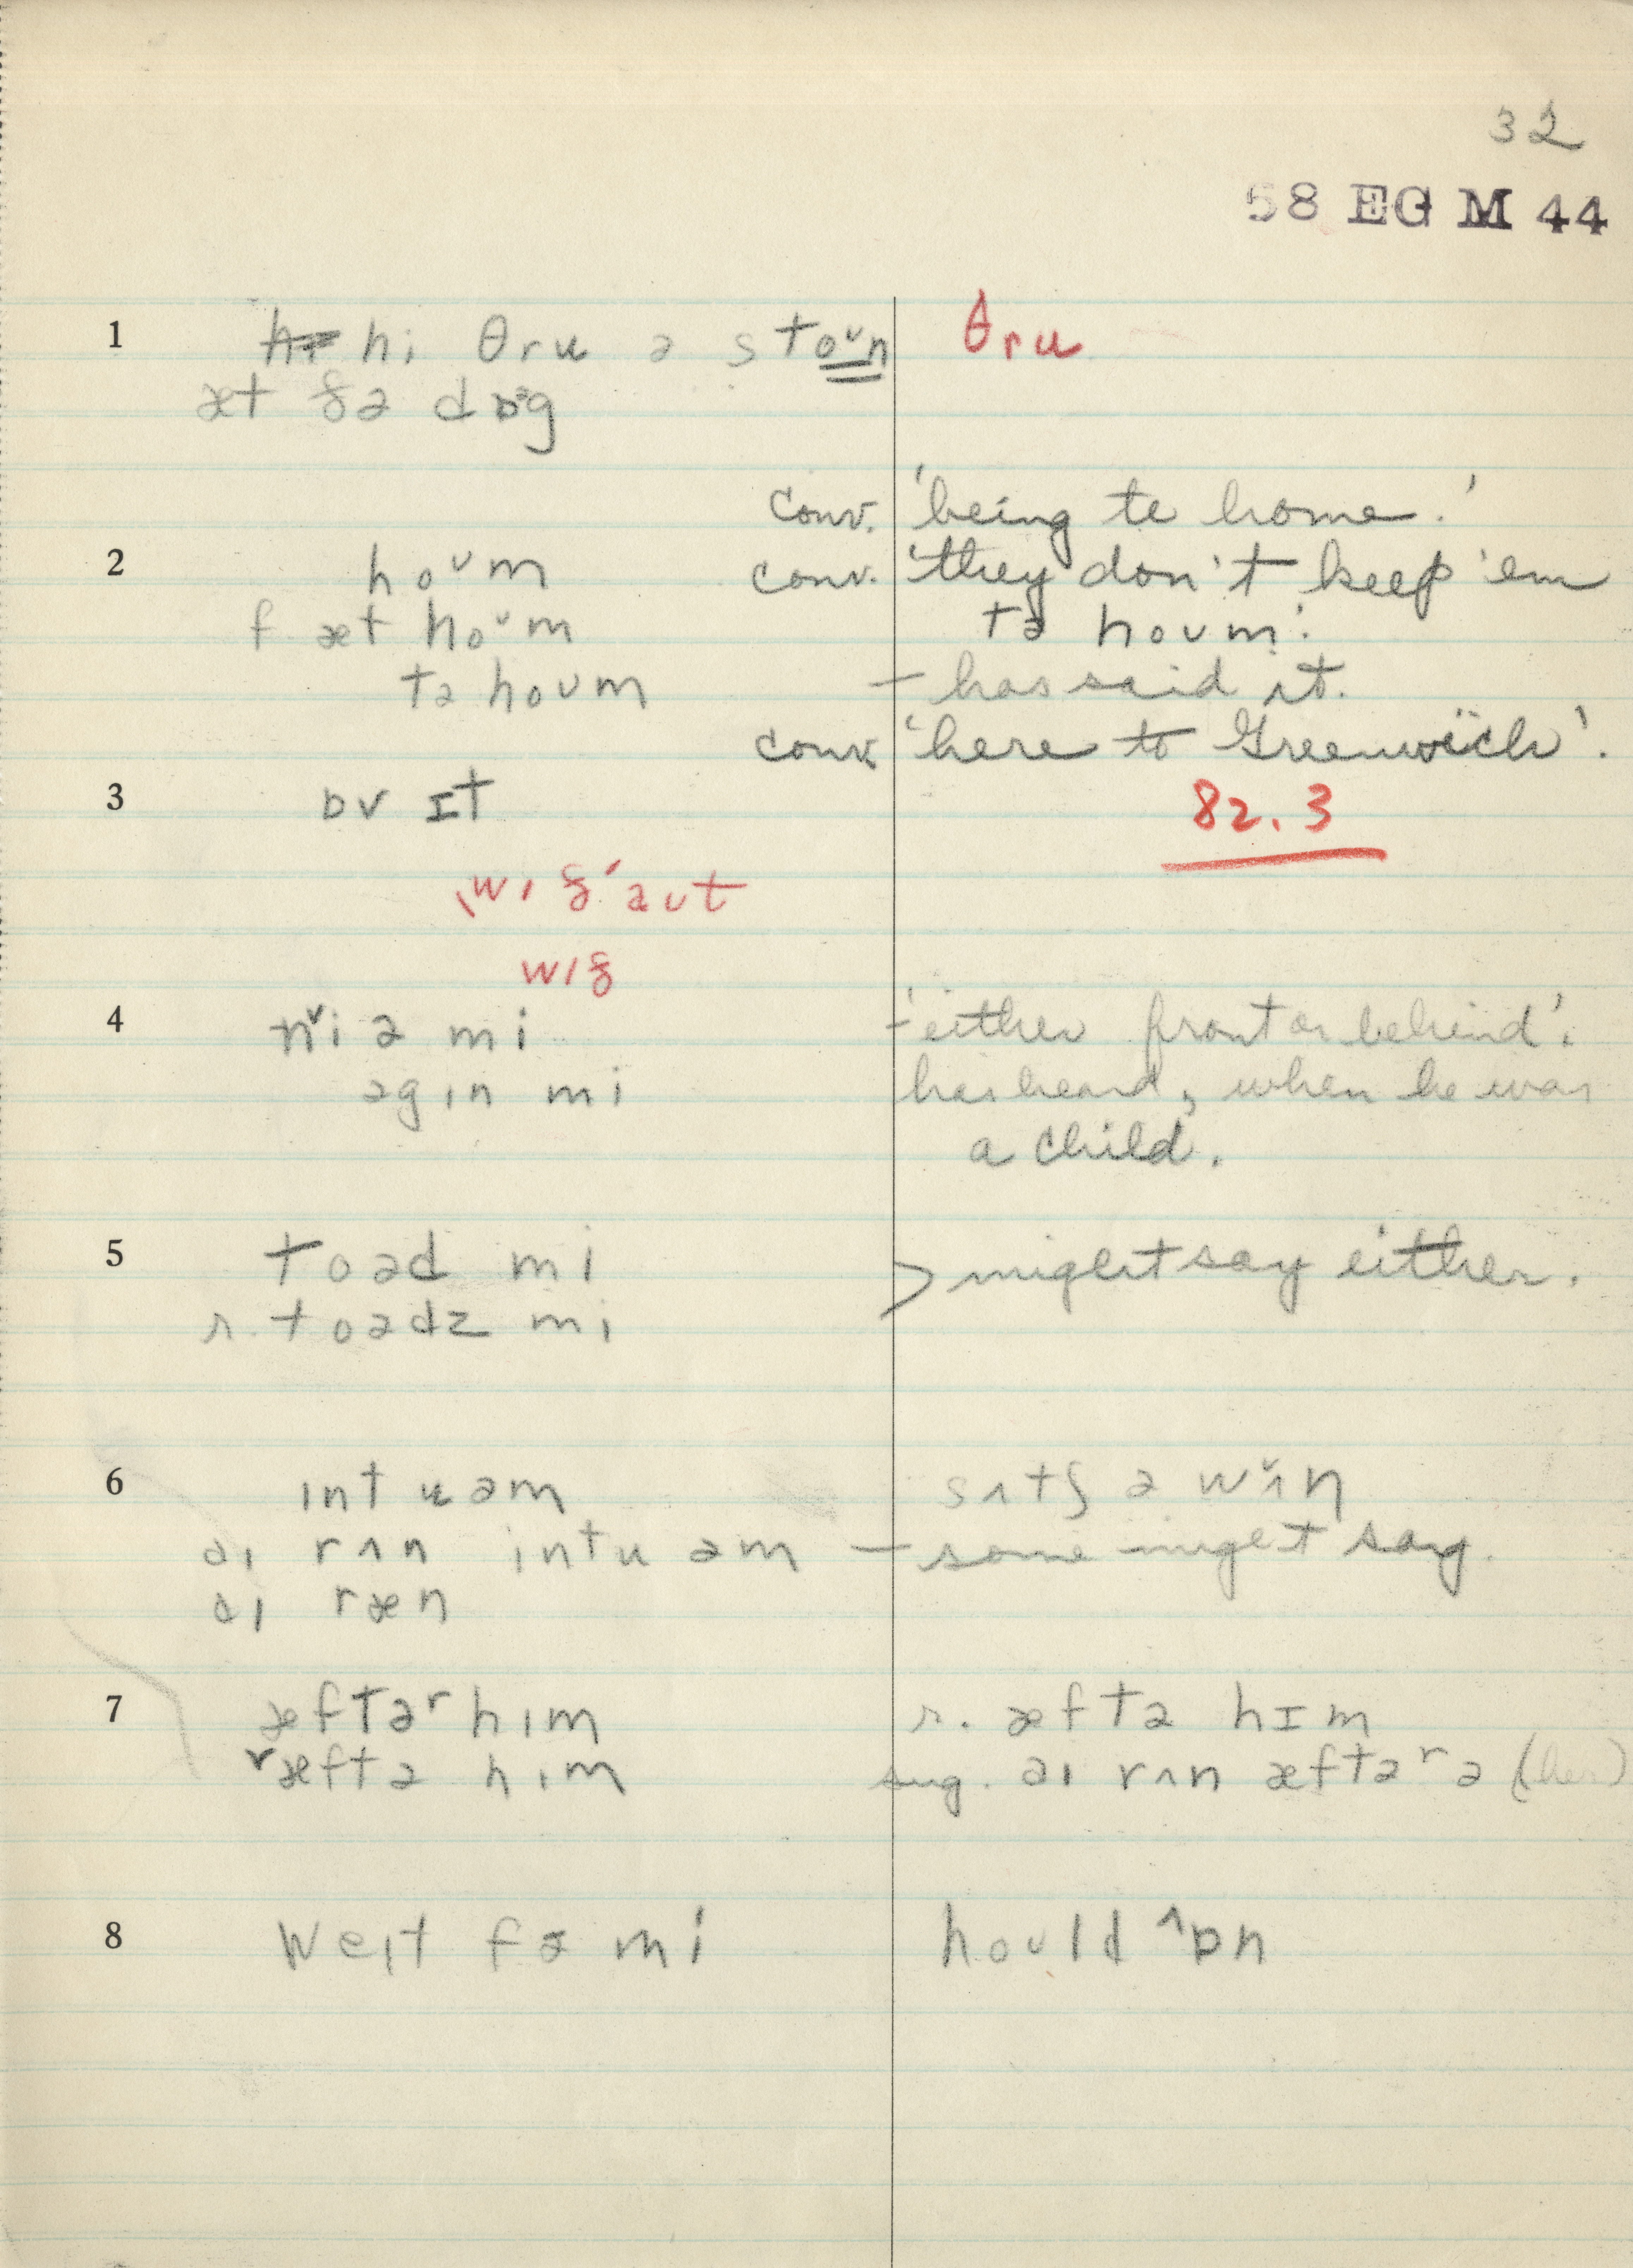 32
58 EG M 44
1 hi θru ə stoʊn θru
æt ðə dɒg
conv. 'being to home.'
2 hoʊm conv. 'they don't keep 'em
f æt hoʊm tə hoʊm'.
tə hoʊm – has said it.
conv. 'here to Greenwich'.
3 ɒv ɪt 82.3
wɪð'aʊt
wɪð
4 nˇiə mi – 'either front or behind'.
əgɪn mi has heard, when he was
a child.
5 toəd mi > might say either.
r. toədz mi
6 ɪntu əm sʌtʃ ə wʌn
aɪ rʌn ɪntu əm – some might say.
aɪ ræn
7 æftəʳ hɪm r. æftə hɪm
ʳæftə hɪm sug. aɪ rʌn æftəʳ ə (her)
8 weɪt fə mi hoʊld ^ɒn